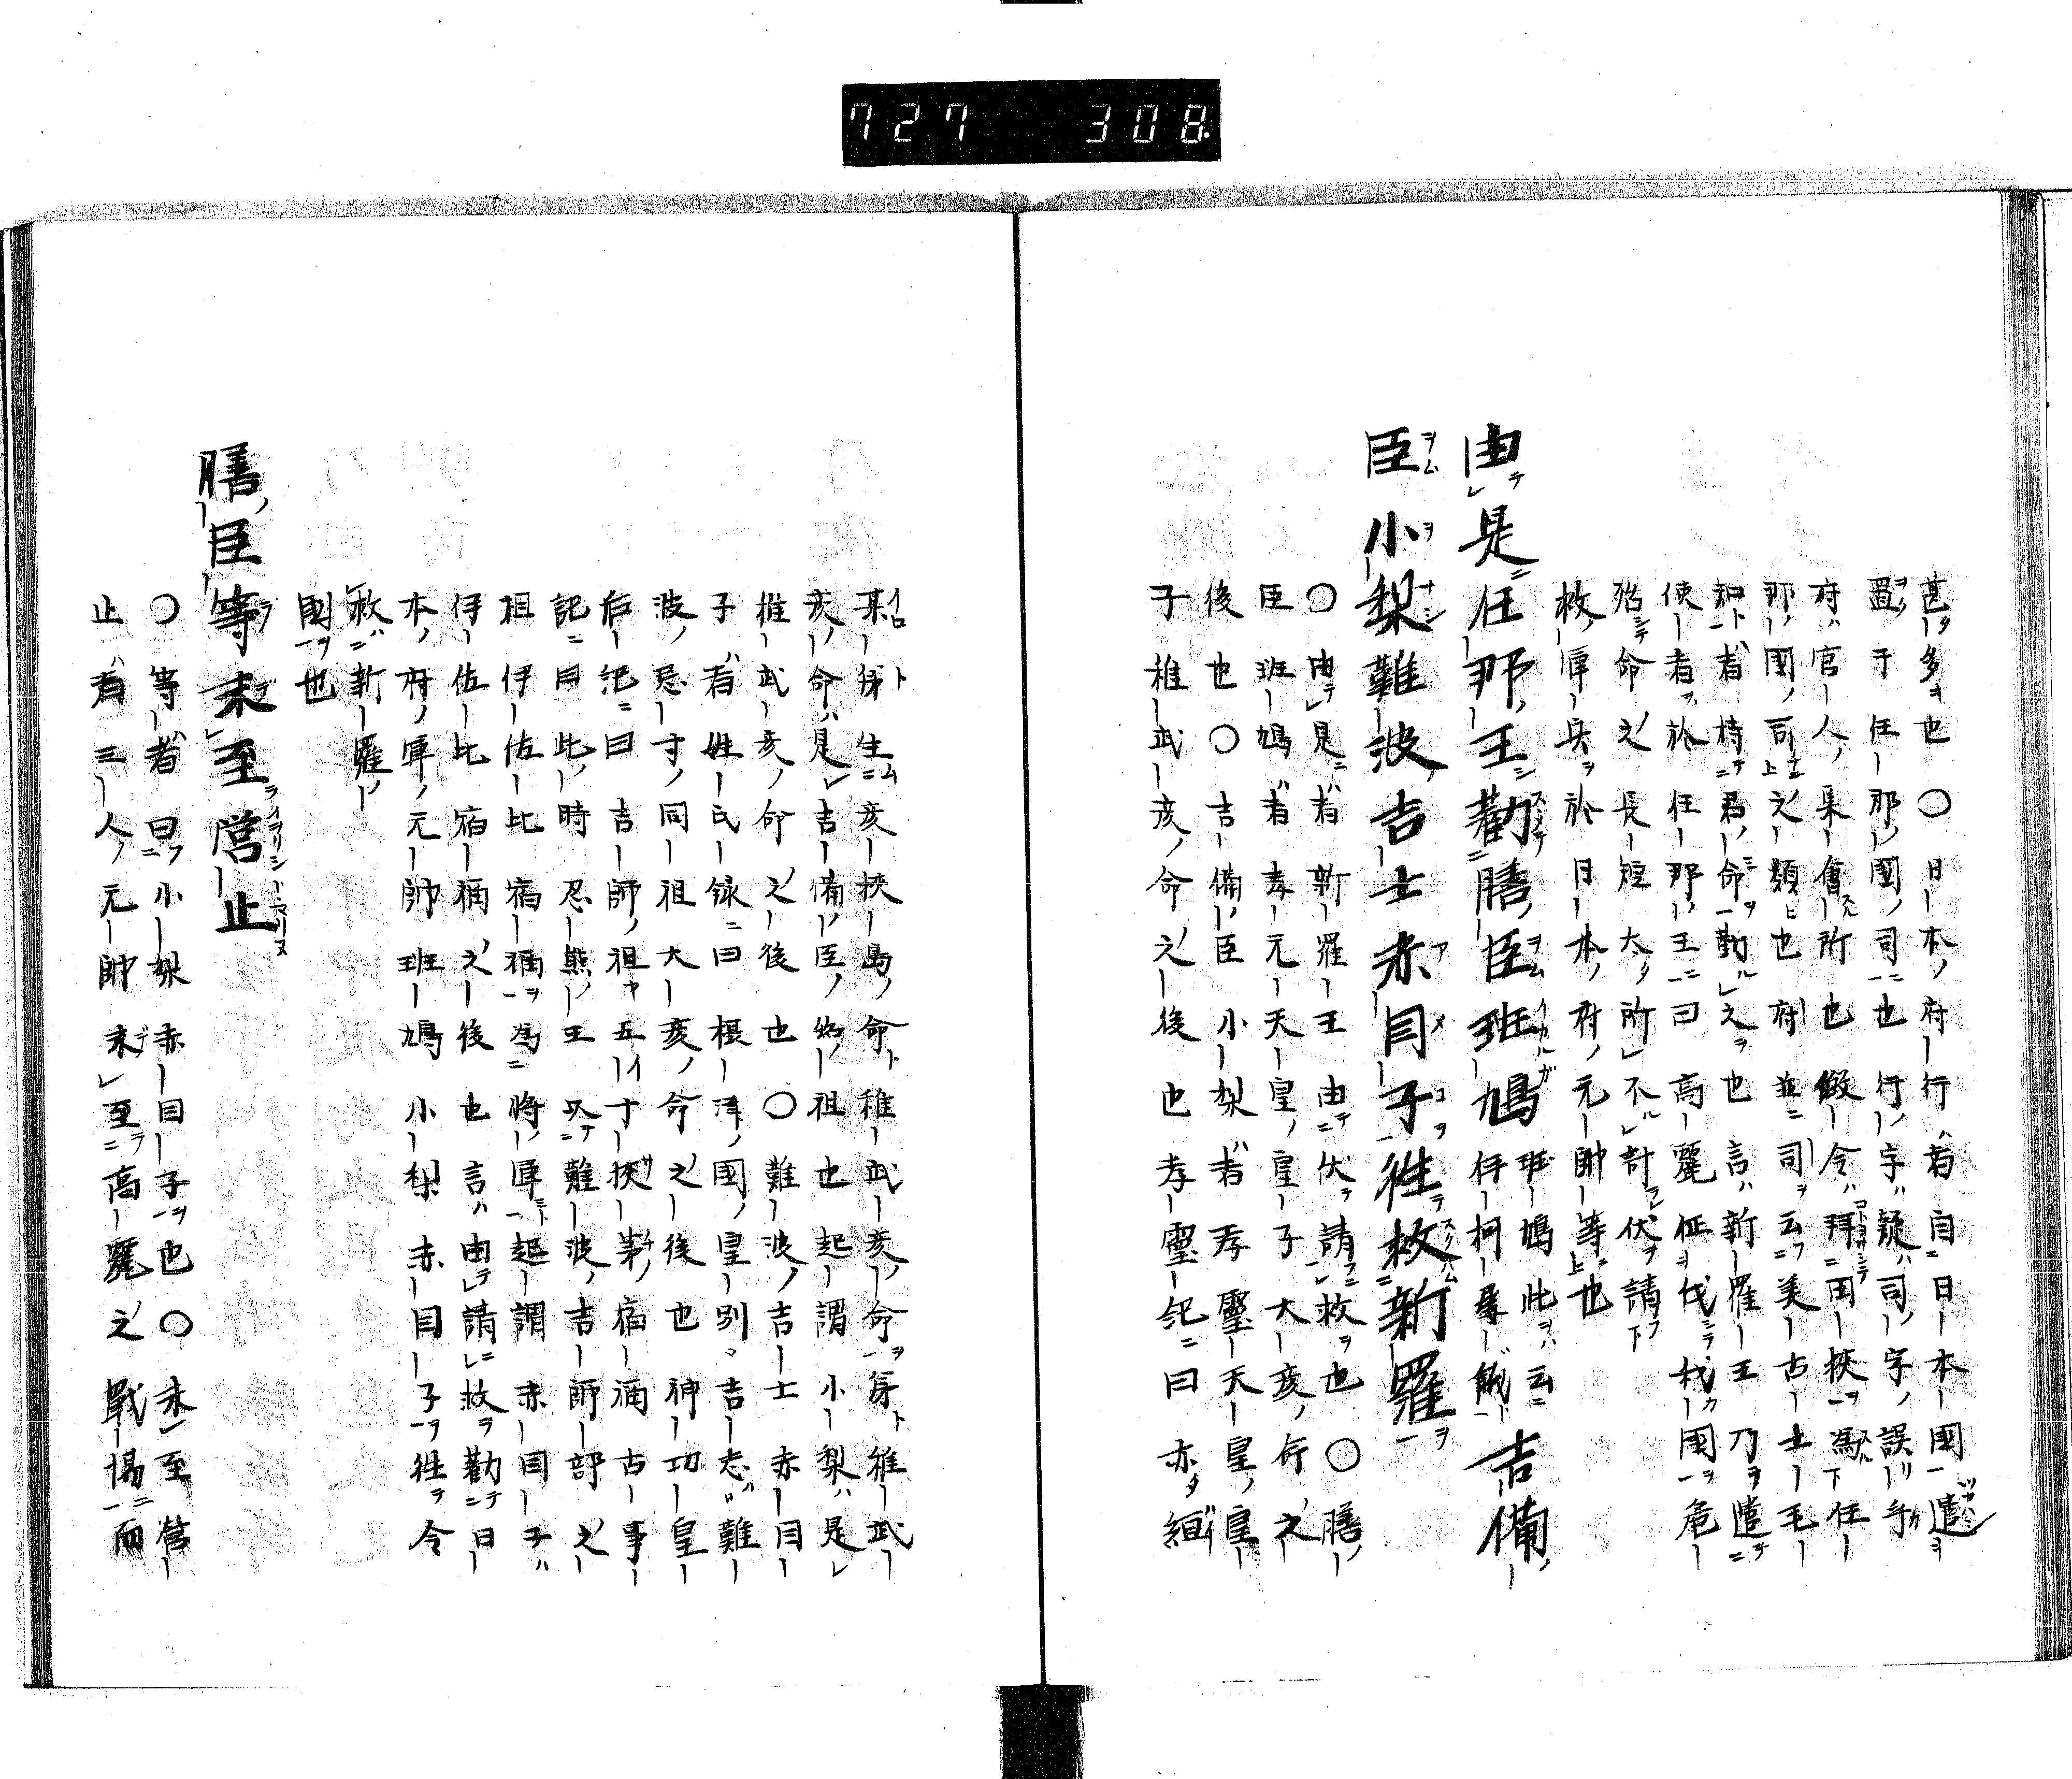 727 308
甚多也〇日本府行者自日本國遣
置于任那國司也行字疑司字誤乎
府官人集會所也假令拜田狹爲任
那國司之類也府並司云美古士毛
知者持君命勤之也言新羅王乃遣
使者於任那王曰高麗征伐我國危
殆命之長短太所不計伏請
救軍兵於日本府元帥等也
由是任那王勸膳臣班鳩班鳩此云伊柯屢餓吉備
臣小梨難波吉士赤目子往救新羅
〇由是者新羅王由伏請救也〇膳
臣班鳩者孝元天皇皇子大彦命之
後也〇吉備臣小梨者孝靈天皇皇
子稚武彦命之後也孝靈紀曰亦絚
某弟生彦狹島命稚武彦命弟稚武
彦命是吉備臣始祖也起謂小梨是
稚武彦命之後也〇難波吉士赤目
子者姓氏録曰攝津國皇別吉志難
波忌寸同祖大彦命之後也神功皇
后紀曰吉師祖五十狹茅宿祢古事
記曰此時忍熊王以難波吉師部之
祖伊佐比宿祢爲將軍起謂赤目子
伊佐比宿祢之後也言由請救勸日
本府軍元帥班鳩小梨赤目子往令
救新羅
國也
膳臣等未至營止
〇等者曰小梨赤目子也〇未至營
止者三人元帥未至高麗之戰場而